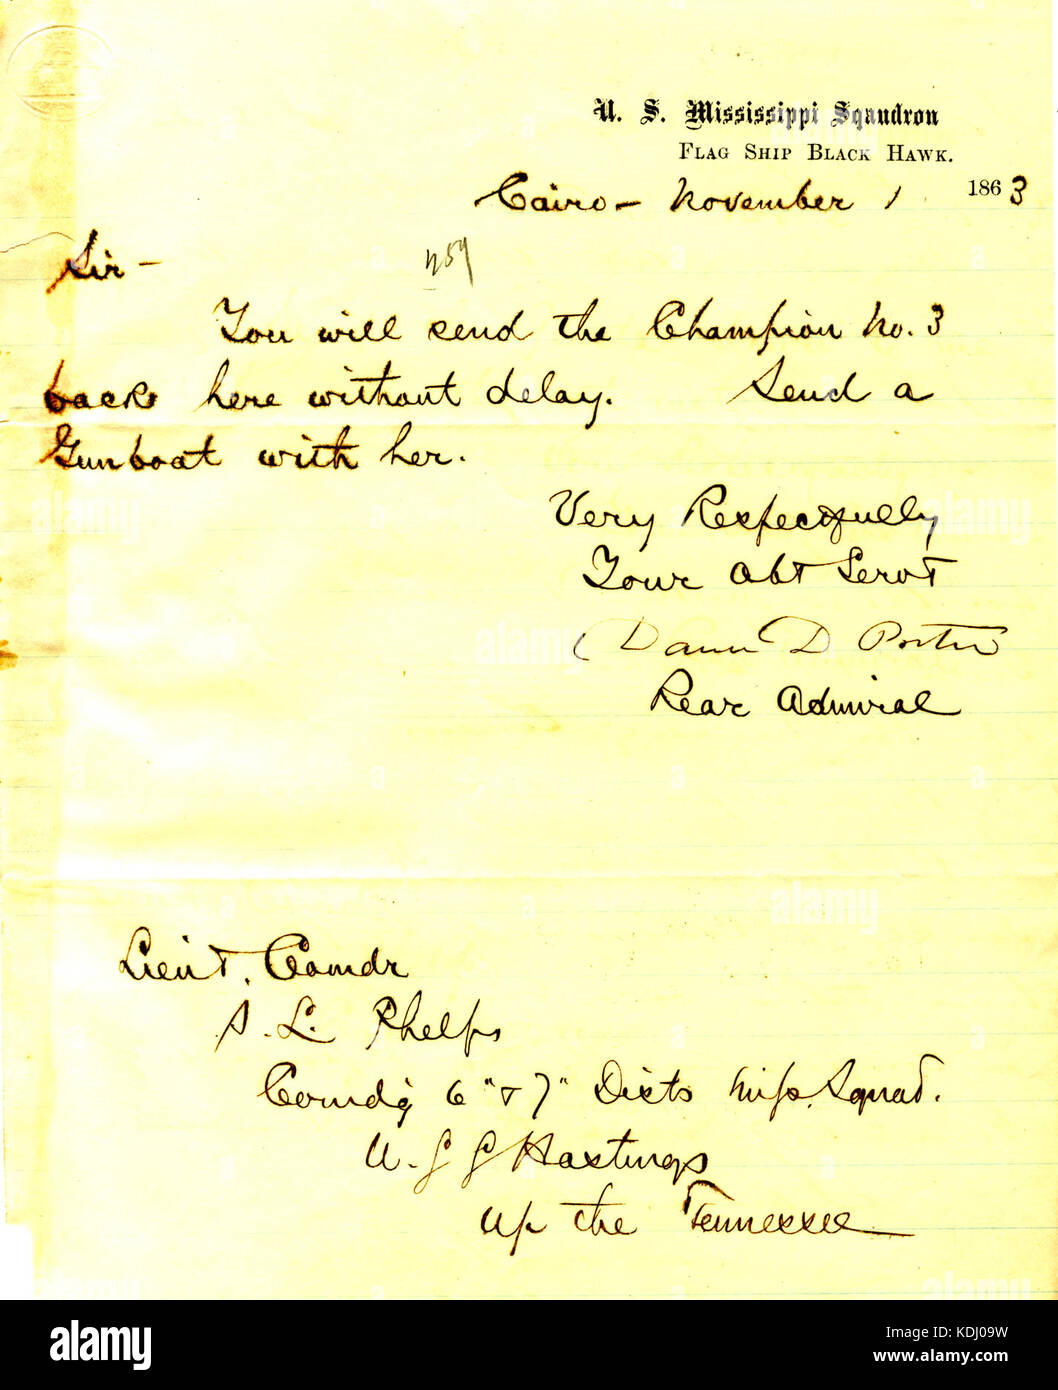 U. S. Mississippi Sqaudron
FLAG SHIP BLACK HAWK.
Cairo - November 1 1863
Sir -
You will send the Champion No. 3
back here without delay. Send a
Gunboat with her.
Very Respectfully
Your Obt Servt
David D Porter
Rear Admiral
Lieut. Comdr
S. L. Phelps
Comdg 6" & 7" Dists Miss. Squad.
U.S.S Hastings
up the Tennessee
alamy
Image ID: KDJ09W
www.alamy.com